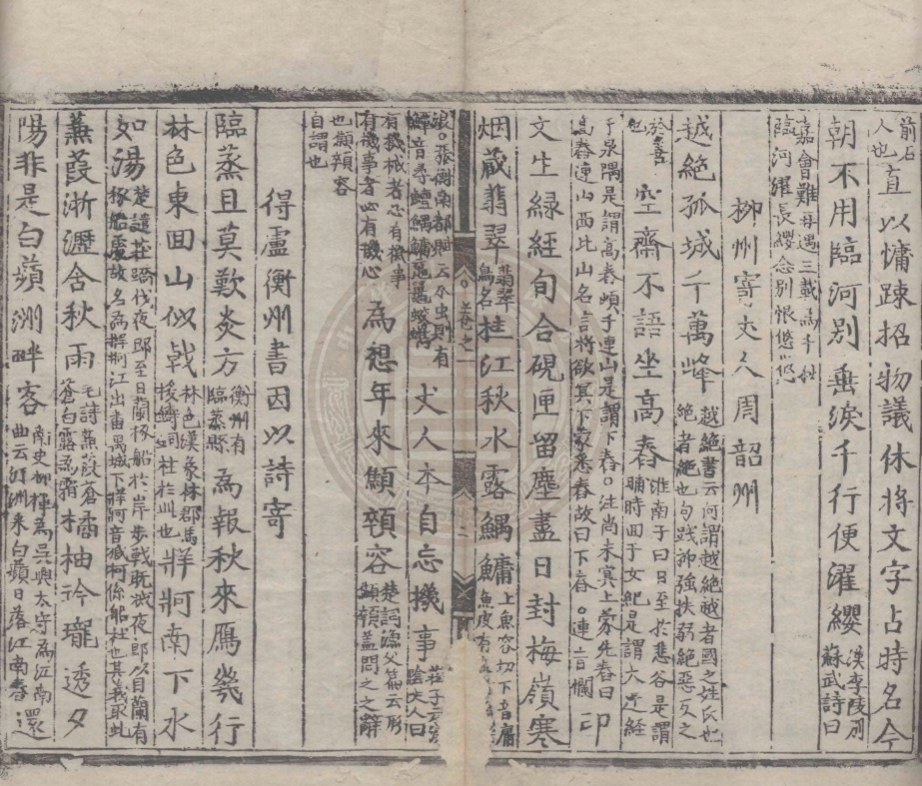 前石人也直以慵疎招物議休将文字占時名今
朝不用臨河別垂淚千行便濯纓漢李陵別蘇武詩曰
嘉會難再遇三載為千秋臨河濯長纓念別悵悠悠
柳州寄丈人周韶州
越絶孤城千萬峰越絶書云何謂越絶越者國之姓氏也絶者絶也句踐抑強扶弱絶惡反之
於善也空齋不語坐高舂淮南子曰日至於悲谷是謂晡時回于女紀是謂大迁經
于泉隅是謂高舂頓于連山是謂下舂。注尚未冥上蒙先舂曰高舂連山西北山名言將欲冥下蒙悉舂故曰下舂。連音欄印
文生緑經旬合硯匣留塵盡日封梅嶺寒
烟蔵翡翠翡翠鳥名桂江秋水露鰅鱅上魚容切下音庸魚皮有
卷之二
張衡南都賦云水虫則有音尋鱣鰅鱅黿鼉鮫丈人本自忘機事莊子云漢陰丈人曰
有機械者必有機事有機事者必有機心為想年來顦顇容楚詞漁父篇云形顦顇蓋問之之辭
也顦顇容自謂也
得盧衡州書因以詩寄
臨蒸且莫歎炎方衡州有臨蒸縣為報秋來鴈幾行
林色東回山似戟林色漢象林郡馬援鑄銅柱於此也牂牁南下水
如湯楚遣莊蹻伐夜郎至且蘭椓船於岸步戰既滅夜郎以且蘭有椓船處故名為牂牁江出番禺城下牂牁音臧柯係船杙也其義取此
蒹葭淅瀝含秋雨毛詩蒹葭蒼蒼白露為霜橘柚玲瓏透夕
陽非是白蘋洲畔客南史柳惲為呉興太守為江南曲云汀洲采白蘋日落江南春還